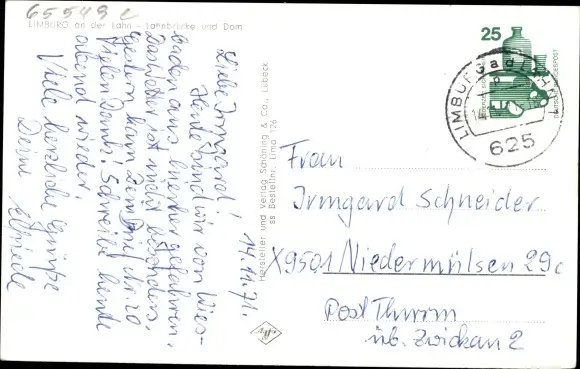 655492
LIMBURG an der Lahn - Lahnbrücke und Dom
14.11.71.
Liebe Irmgard!
Heute sind wir von Wies-
baden aus hierher gefahren.
Das Wetter ist nicht besonders.
Gestern kam Dein Brief Nr. 20
Vielen Dank! Schreibe heute
abend wieder.
Viele herzliche Grüße
Deine Elfriede
Hersteller und Verlag Schöning & Co., Lübeck
ss Bestellnr. Lima 126
25
DEUTSCHE BUNDESPOST
LIMBURG a d LAHN
625
Frau
Irmgard Schneider
X9501 Niedermülsen 29c
Post Thurm
üb. Zwickau 2